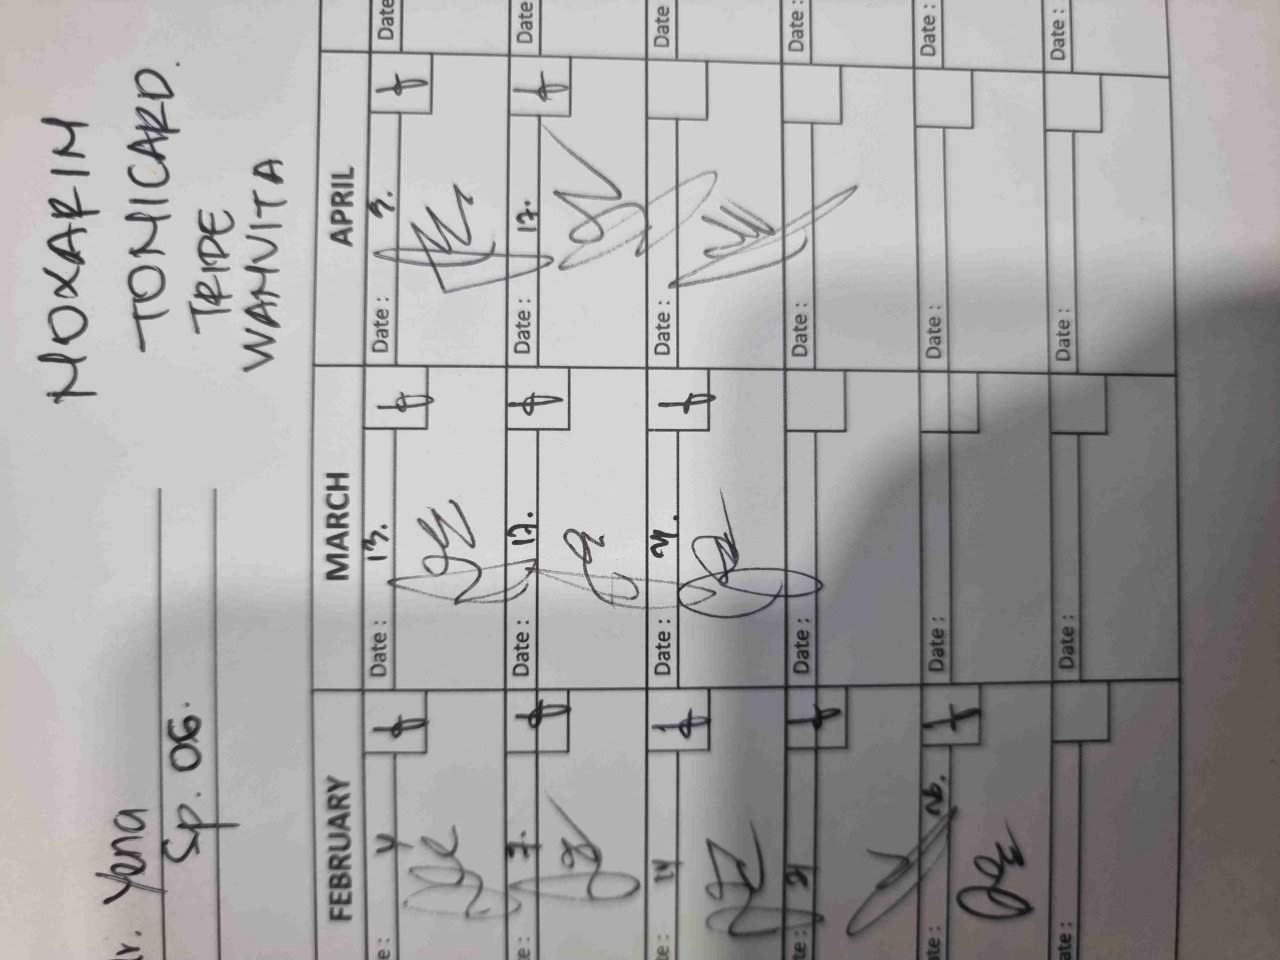 NOXAFIM
TONICARD.
TRIPE
WANVITA
dr. Yena
Sp. OG.
FEBRUARY MARCH APRIL
Date : 4 Date : 13. Date : 3. Date
Date : 7. Date : 17. Date : 17. Date
Date : 14 Date : 21. Date : Date
Date : 21 Date : Date : Date :
Date : 26. Date : Date : Date :
Date : Date : Date : Date :